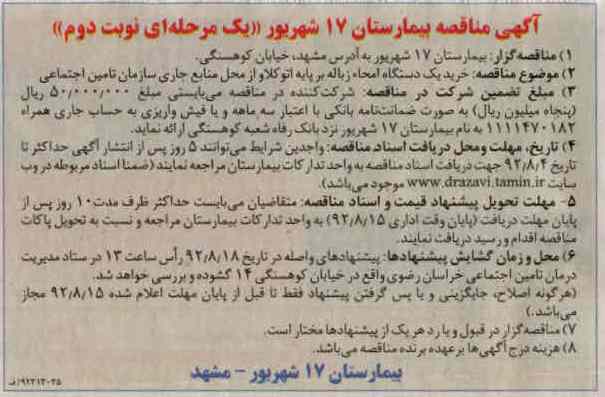 آگهی مناقصه بیمارستان ۱۷ شهریور «یک مرحله‌ای نوبت دوم»
۱) مناقصه‌گزار: بیمارستان ۱۷ شهریور به آدرس مشهد، خیابان کوهسنگی.
۲) موضوع مناقصه: خرید یک دستگاه امحاء زباله بر پایه اتوکلاو از محل منابع جاری سازمان تامین اجتماعی
۳) مبلغ تضمین شرکت در مناقصه: شرکت‌کننده در مناقصه می‌بایستی مبلغ ۵۰/۰۰۰/۰۰۰ ریال
(پنجاه میلیون ریال) به صورت ضمانت‌نامه بانکی با اعتبار سه ماهه و یا فیش واریزی به حساب جاری همراه
۱۱۱۱۴۷۰۱۸۲ به نام بیمارستان ۱۷ شهریور نزد بانک رفاه شعبه کوهسنگی ارائه نماید.
۴) تاریخ، مهلت و محل دریافت اسناد مناقصه: واجدین شرایط می‌توانند ۵ روز پس از انتشار آگهی حداکثر تا
تاریخ ۹۲/۸/۴ جهت دریافت اسناد مناقصه به واحد تدارکات بیمارستان مراجعه نمایند (ضمنا اسناد مربوطه در وب
سایت www.drazavi.tamin.ir موجود می‌باشد).
۵- مهلت تحویل پیشنهاد قیمت و اسناد مناقصه: متقاضیان می‌بایست حداکثر ظرف مدت ۱۰ روز پس از
پایان مهلت دریافت (پایان وقت اداری ۹۲/۸/۱۵) به واحد تدارکات بیمارستان مراجعه و نسبت به تحویل پاکات
مناقصه اقدام و رسید دریافت نمایند.
۶) محل و زمان گشایش پیشنهادها: پیشنهادهای واصله در تاریخ ۹۲/۸/۱۸ رأس ساعت ۱۳ در ستاد مدیریت
درمان تامین اجتماعی خراسان رضوی واقع در خیابان کوهسنگی ۱۴ گشوده و بررسی خواهد شد.
(هرگونه اصلاح، جایگزینی و یا پس گرفتن پیشنهاد فقط تا قبل از پایان مهلت اعلام شده ۹۲/۸/۱۵ مجاز
می‌باشد.)
۷) مناقصه‌گزار در قبول و یا رد هر یک از پیشنهادها مختار است.
۸) هزینه درج آگهی‌ها بر عهده برنده مناقصه می‌باشد.
بیمارستان ۱۷ شهریور - مشهد